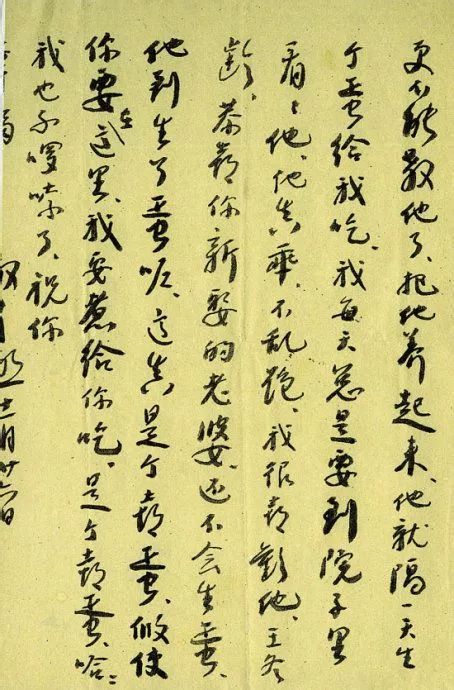 更不能殺他了、把他养起来、他就隔一天生
个蛋给我吃、我每天总是要到院子里
看〻他、他真乖、不乱跑、我很喜歡他、王冬
齡、恭喜你新娶的老婆、还不会生蛋、
他到生了蛋呢、這真是个喜蛋、倘使
你要在這里、我要煮给你吃、是个喜蛋、哈〻
我也不啰嗦了、祝你
福
月廿六日